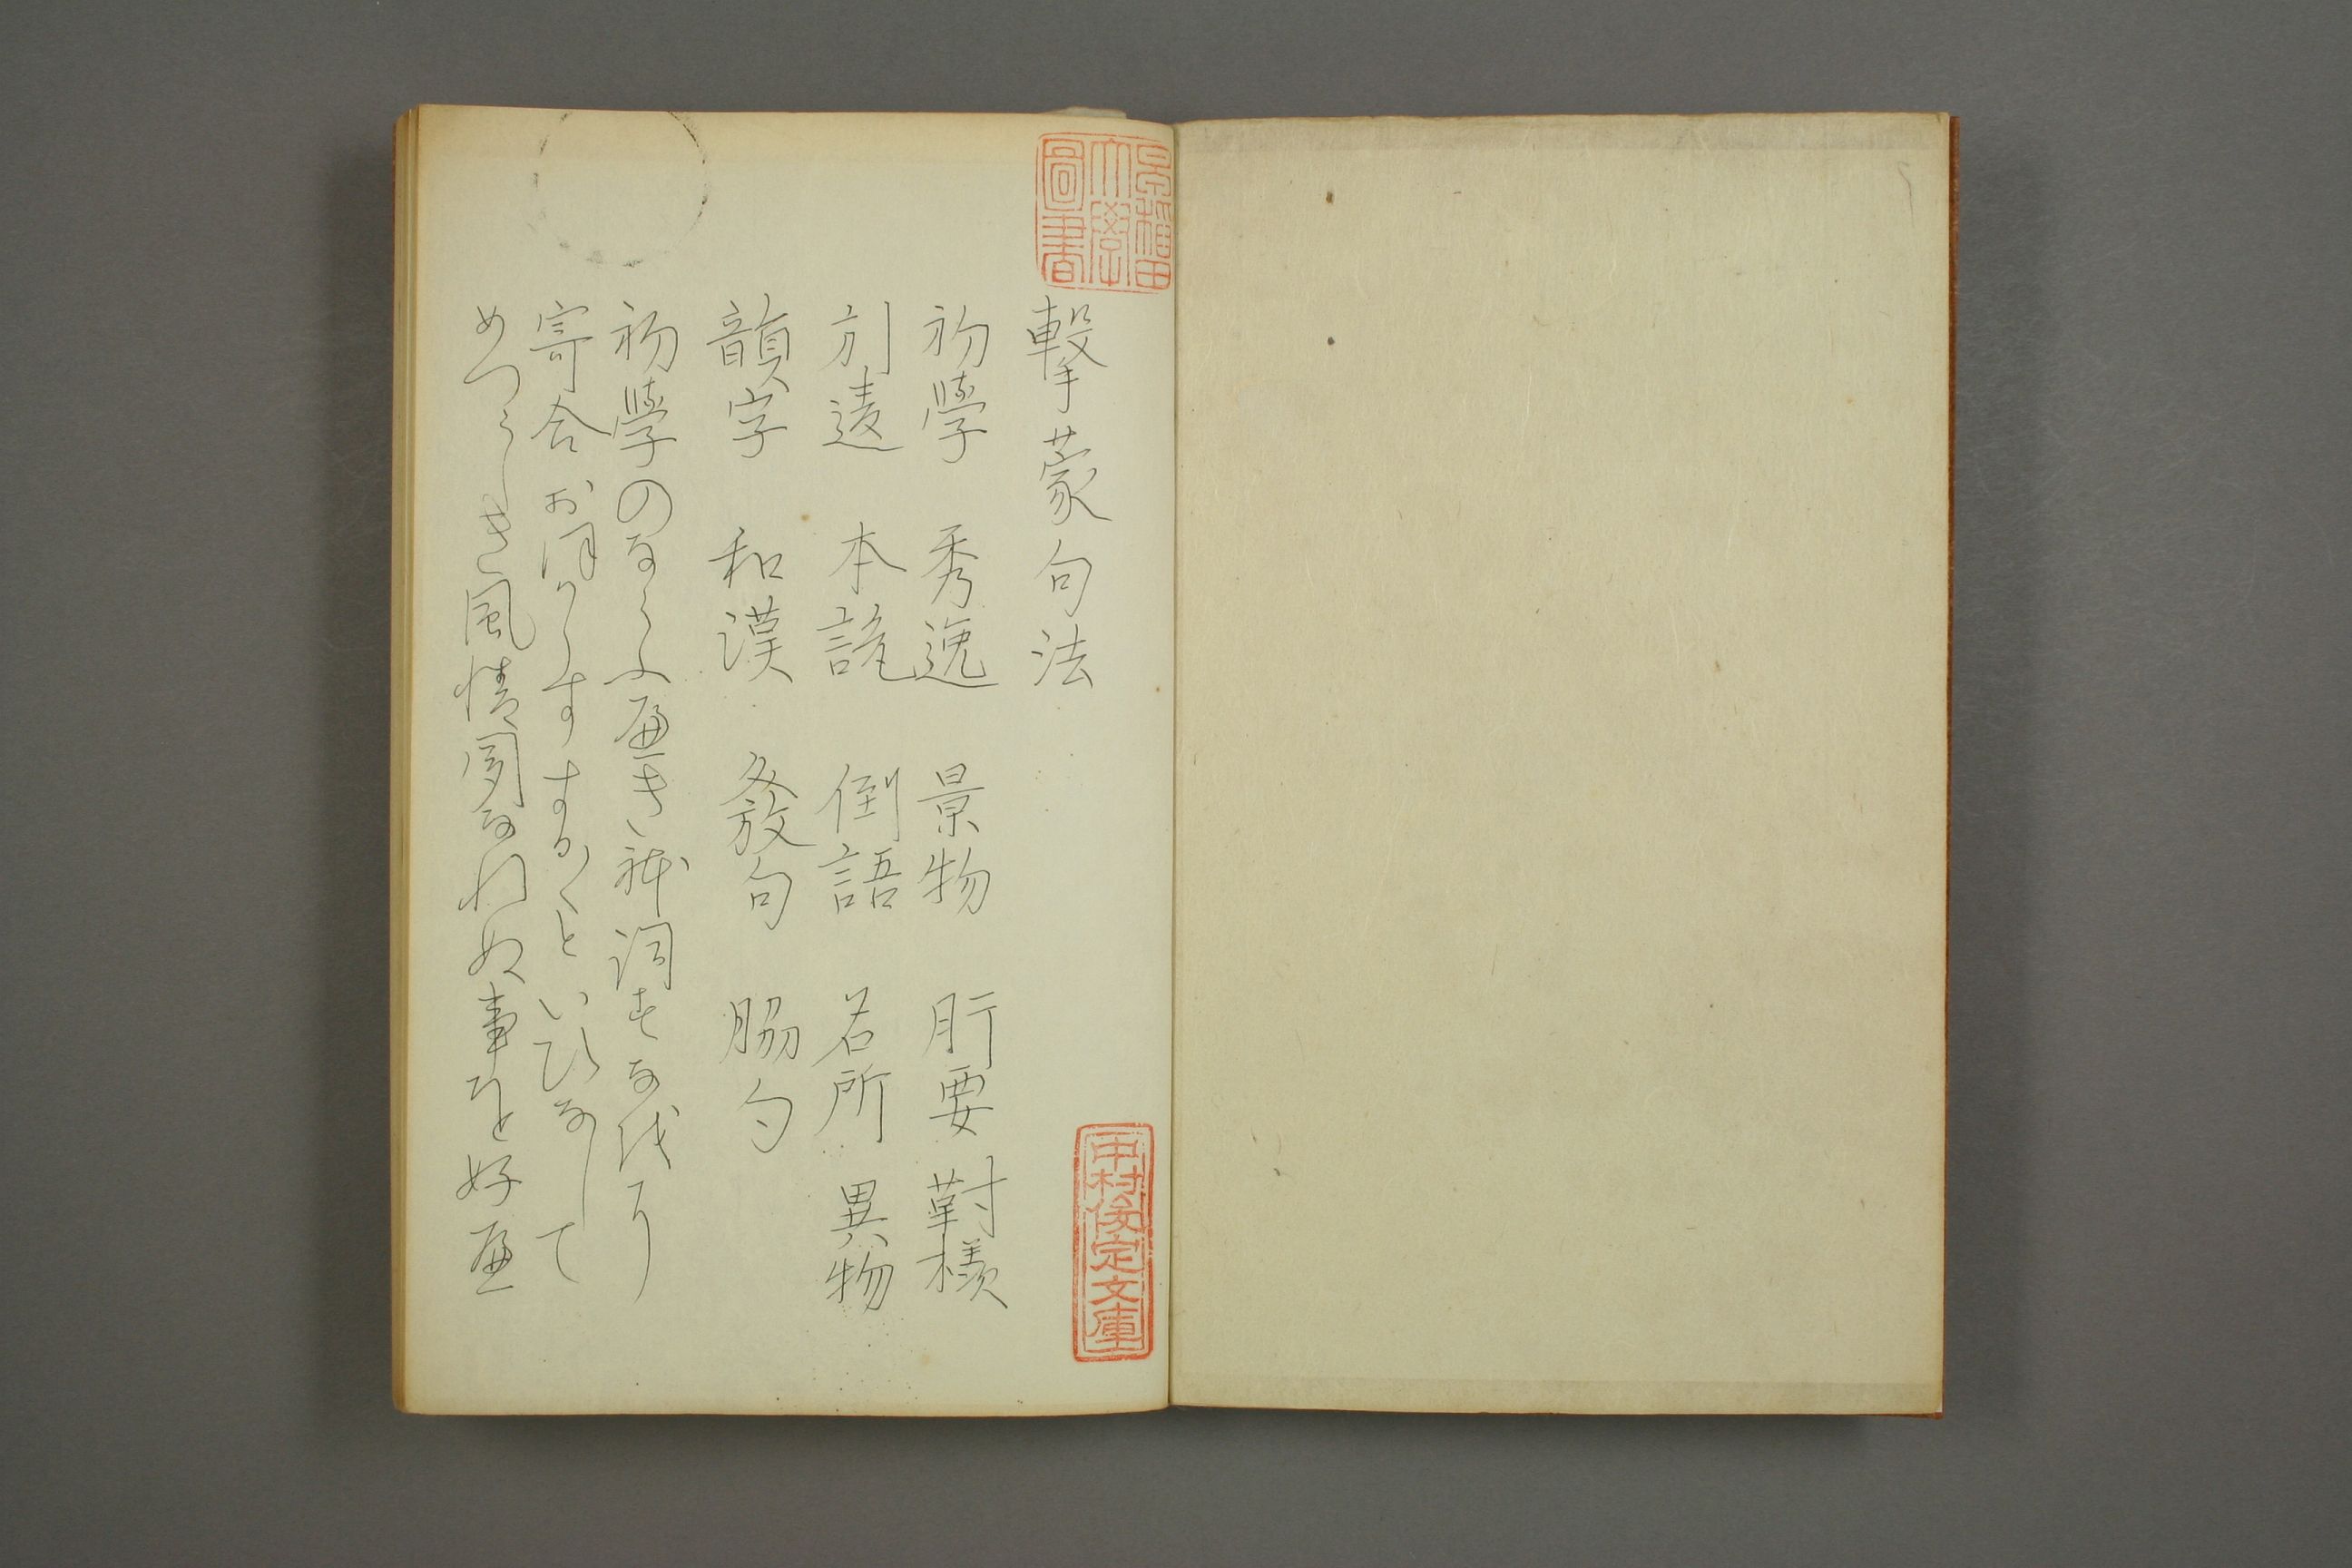 撃蒙句法
初學 秀逸 景物 肝要 對様
別達 本説 倒語 名所 異物
韻字 和漢 發句 脇句
初學のならふ遍き躰詞すなほり
寄合お保からすするくといひなして
めつらしき風情聞なれぬ事を好遍
早稲田大學圖書
中村俊定文庫